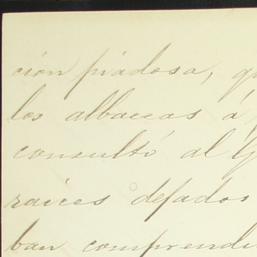 cion piadosa, qu
los albaceas á
consultó al G
raices dejados
ban comprendi